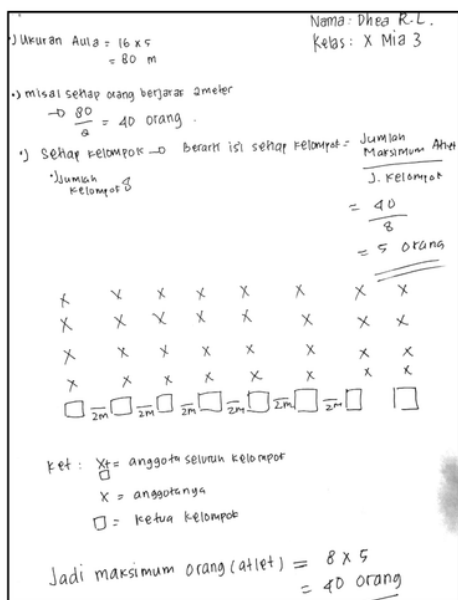 Nama: Dhea R.L.
Kelas: X Mia 3
•) Ukuran Aula = 16 x 5
= 80 m
•) misal setiap orang berjarak 2meter
→ 80/2 = 40 orang.
•) Setiap kelompok → Berarti isi setiap kelompok = Jumlah Maksimum Atlet / J. Kelompok
•) Jumlah kelompok 8
= 40/8
= 5 orang
x x x x x x x x
x x x x x x x x
x x x x x x x x
x x x x x x x x
□ 2m □ 2m □ 2m □ 2m □ 2m □ 2m □ □
ket : x+□ = anggota seluruh kelompok
x = anggotanya
□ = ketua kelompok
Jadi maksimum orang (atlet) = 8 x 5
= 40 orang